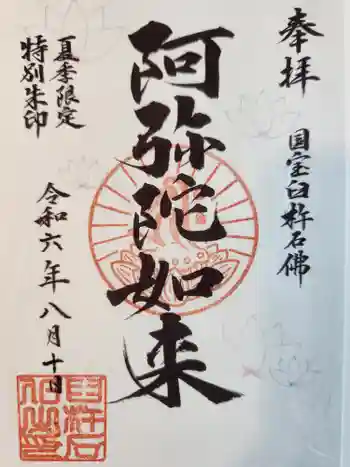 奉拝
国宝臼杵石佛
阿弥陀如来
夏季限定
特別朱印
令和六年八月十日